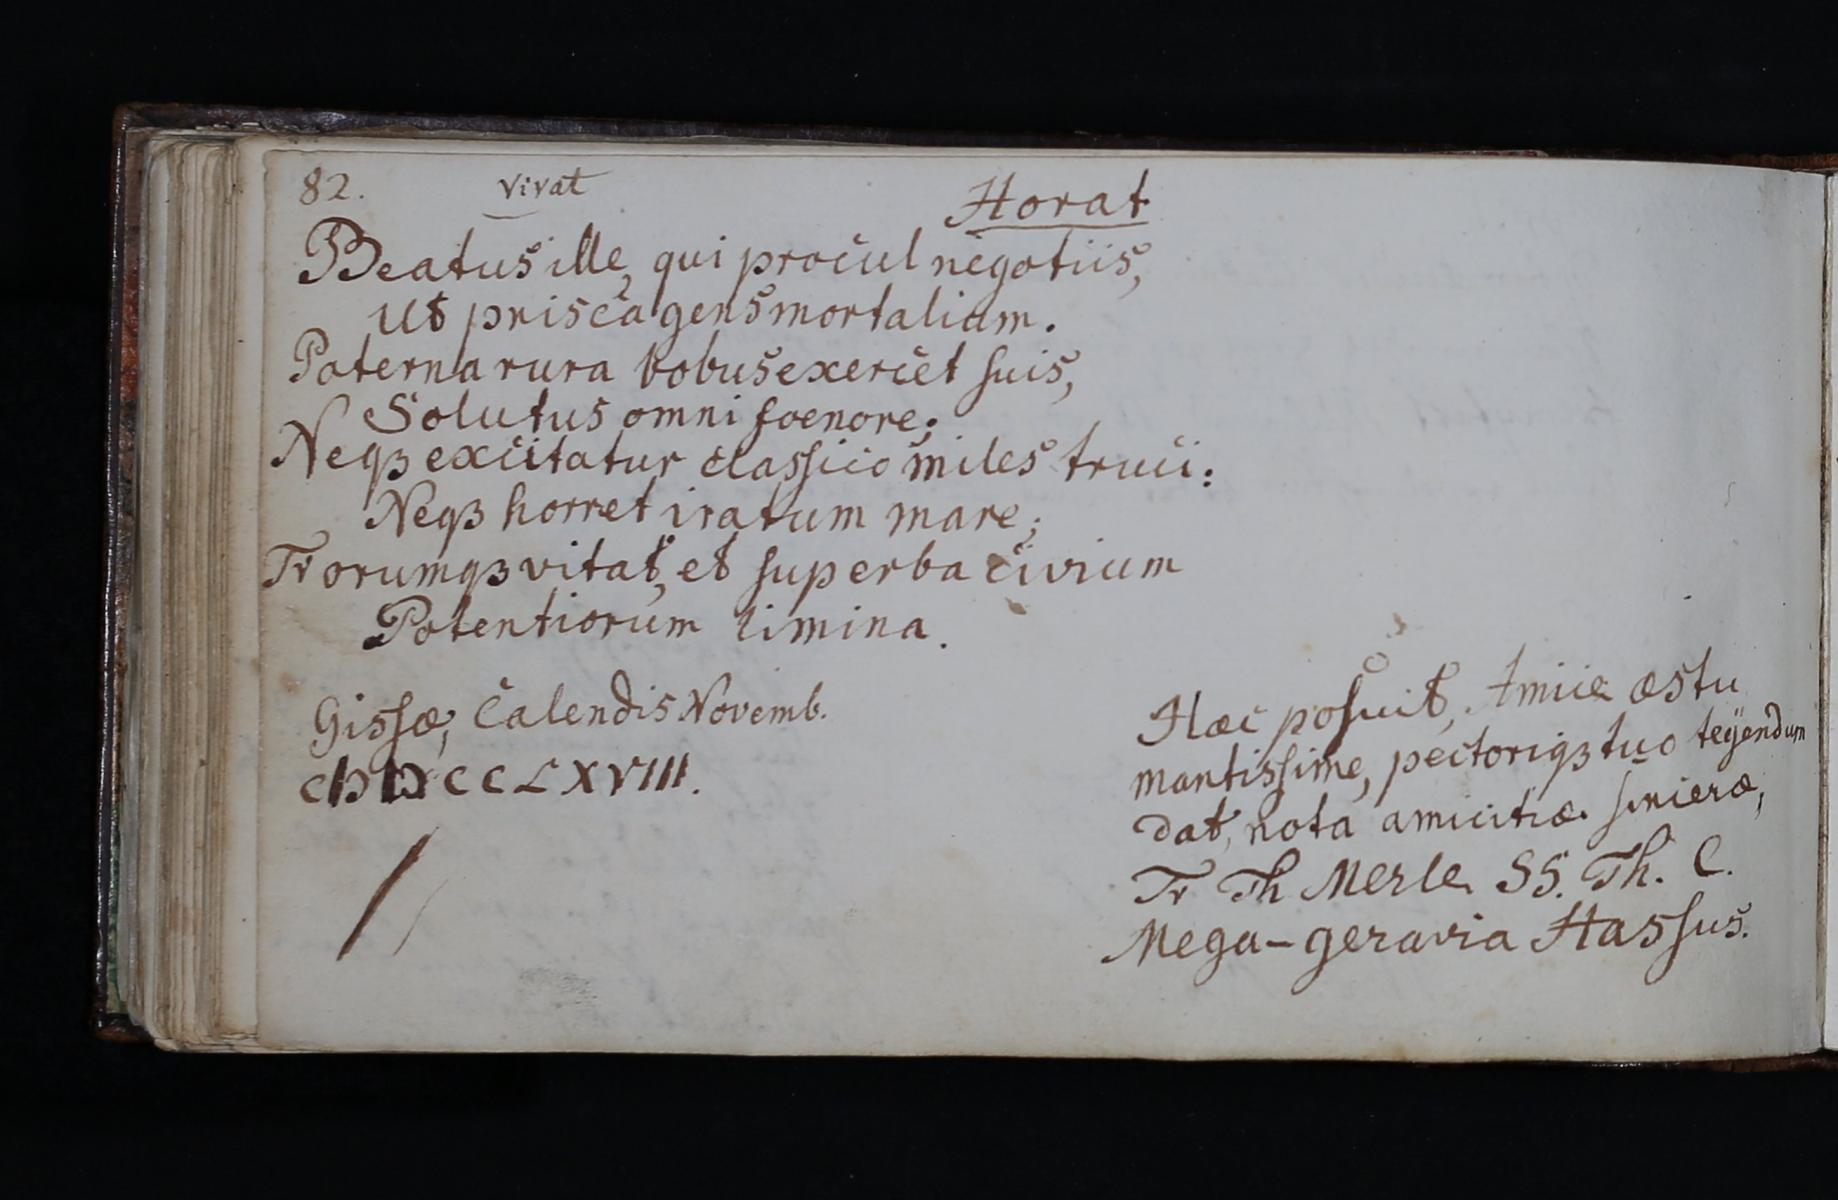 82. vivat Horat.
Beatus ille, qui procul negotiis,
Ut prisca gens mortalium.
Paterna rura bobus exercet suis,
Solutus omni foenore;
Neqȝ excitatur classico miles truci:
Neqȝ horret iratum mare;
Frorumqȝ vitat, et superba civium
Potentiorum limina.
Gissæ, Calendis Novemb.
cIↃ IↃCCLXVIII.
Hæc posuit, Amice æstu
mantissime, pectoriqȝ tuo tegendum
dat, nota amicitiæ sinceræ,
Fr Th Merle SS. Th. C.
Mega-geravia Hassus.